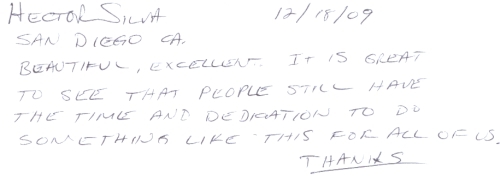 HECTOR SILVA 12/18/09
SAN DIEGO CA.
BEAUTIFUL, EXCELLENT. IT IS GREAT
TO SEE THAT PEOPLE STILL HAVE
THE TIME AND DEDICATION TO DO
SOMETHING LIKE THIS FOR ALL OF US.
THANKS